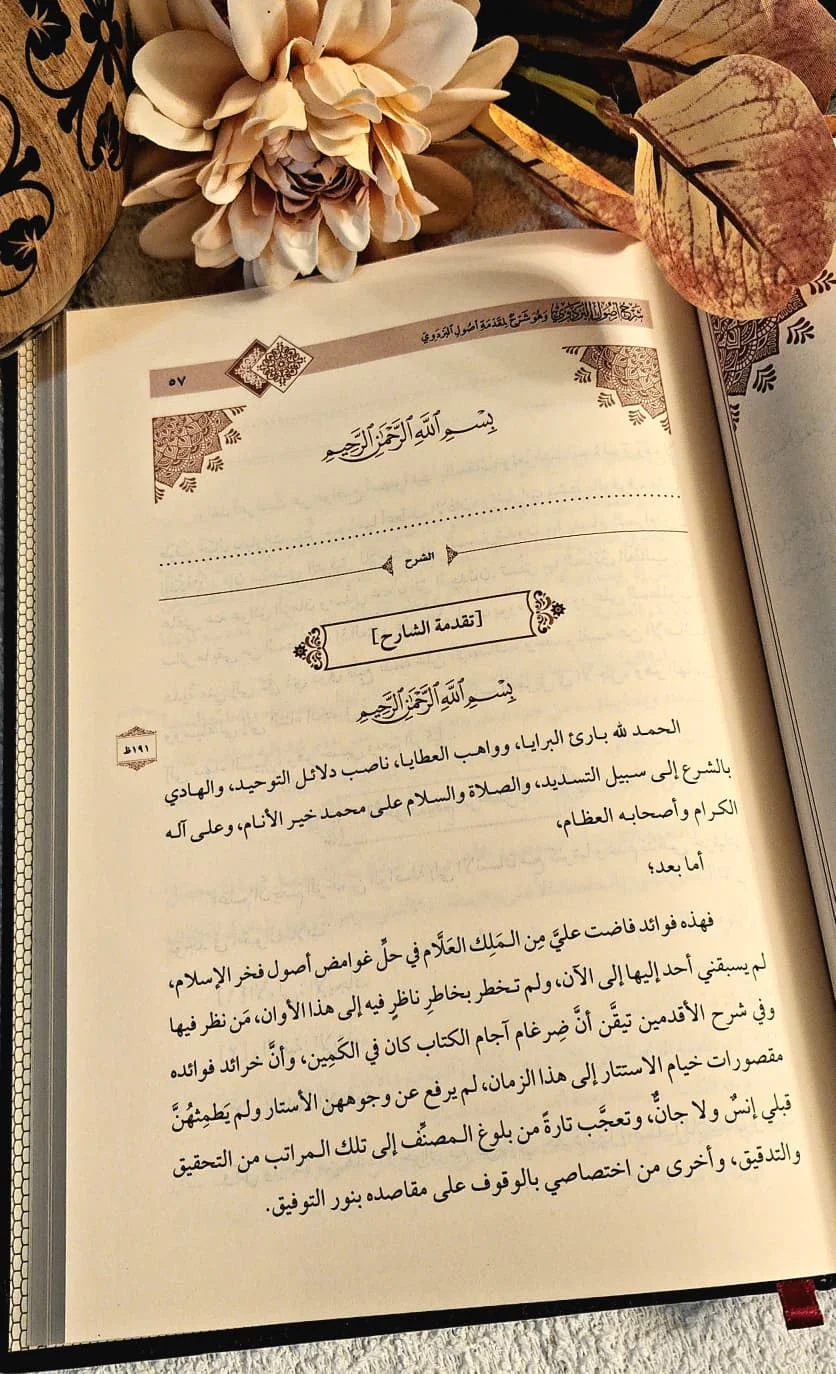 شرح أصول البزدوي وهو شرح لمقدمة أصول البزدوي
٥٧
بِسْمِ اللَّهِ الرَّحْمَٰنِ الرَّحِيمِ
الشرح
[تقدمة الشارح]
بِسْمِ اللَّهِ الرَّحْمَٰنِ الرَّحِيمِ
١٩١ظ
الحمد لله بارئ البرايا، وواهب العطايا، ناصب دلائل التوحيد، والهادي
بالشرع إلى سبيل التسديد، والصلاة والسلام على محمد خير الأنام، وعلى آله
الكرام وأصحابه العظام،
أما بعد؛
فهذه فوائد فاضت عليَّ مِن الـمَلِك العَلَّام في حلِّ غوامض أصول فخر الإسلام،
لم يسبقني أحد إليها إلى الآن، ولم تخطر بخاطرِ ناظرٍ فيه إلى هذا الأوان، مَن نظر فيها
وفي شرح الأقدمين تيقَّن أنَّ ضِرغام آجام الكتاب كان في الكَمِين، وأنَّ خرائد فوائده
مقصورات خيام الاستتار إلى هذا الزمان، لم يرفع عن وجوههن الأستار ولم يَطمِثهُنَّ
قبلي إنسٌ ولا جانٌّ، وتعجَّب تارةً من بلوغ الـمصنِّف إلى تلك الـمراتب من التحقيق
والتدقيق، وأخرى من اختصاصي بالوقوف على مقاصده بنور التوفيق.